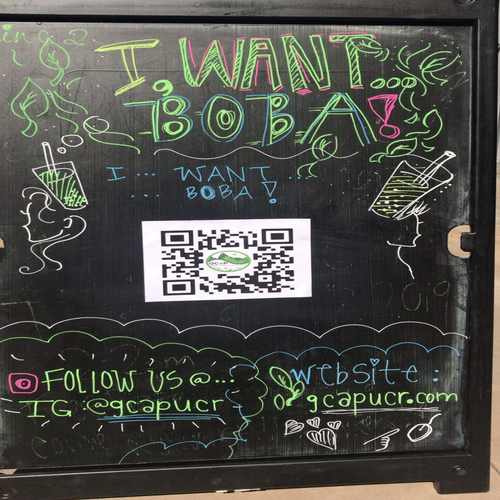 I WANT...
BOBA!
I ... WANT ...
... BOBA!
FOLLOW US @...
IG: @gcapucr
website:
gcapucr.com